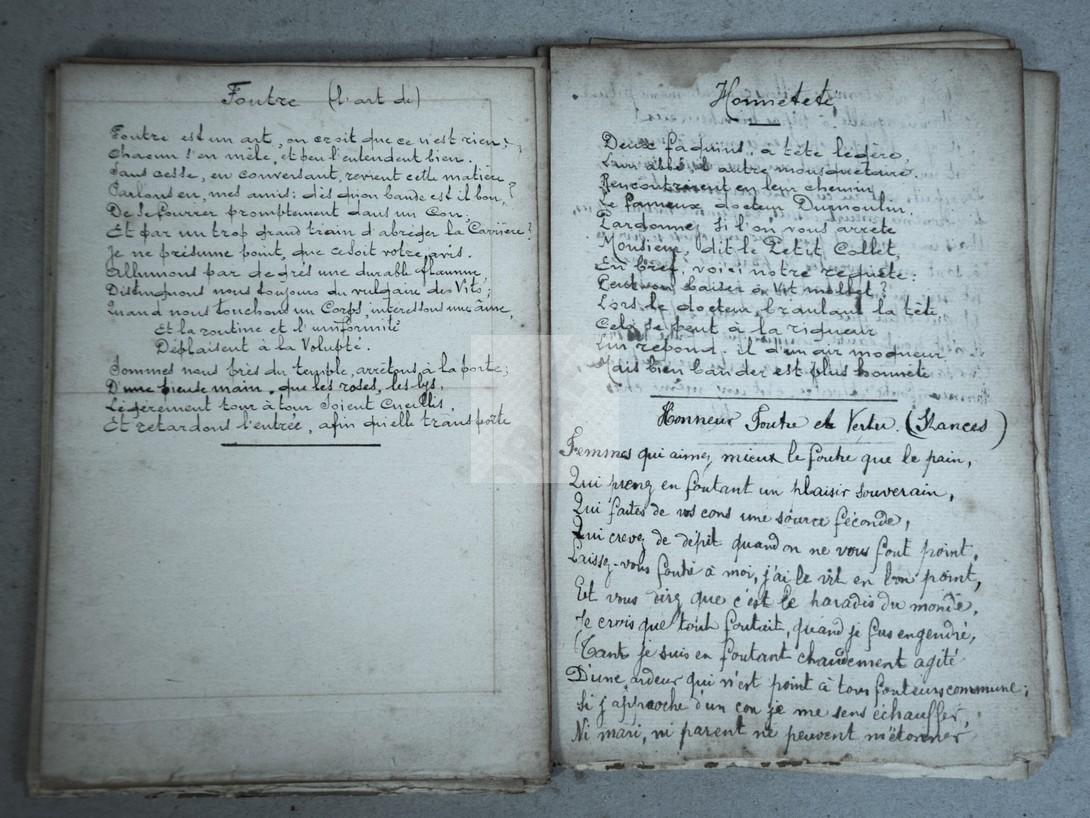 Foutre (l'art de)
Foutre est un art, on croit que ce n'est rien;
Chacun s'en mêle, et peu l'entendent bien.
Sans cesse, en conversant, revient cette matière
Parlons en, mes amis: dès qu'on bande est il bon,
De se fourrer promptement dans un Con,
Et par un trop grand train d'abréger la Carrière?
Je ne présume point, que ce soit votre avis.
Allumons par degrés une durable flamme,
Distinguons nous toujours du vulgaire des Vits;
Quand nous touchons un Corps, intéressons une âme,
Et la routine et l'uniformité
Déplaisent à la Volupté.
Sommes nous près du temple, arrêtons à la porte;
D'une main, que les roses, les lys,
Légèrement tour à tour soient Cueillis,
Et retardons l'entrée, afin qu'elle transporte
Honnêteté
Deux faquins, à tête legère,
L'un abbé, l'autre mousquetaire.
Rencontrèrent en leur chemin
Le fameux docteur Dumoulin.
Pardonnez si l'on vous arrête
Monsieur, dit le Petit Collet,
En bref, voici notre requête:
Peut-on baiser à Vit mollet?
Lors le docteur, branlant la tête
Cela se peut à la rigueur
Lui répond-il d'un air moqueur
Mais bien bander est plus honnête
Honneur Foutre et Vertu. (Stances)
Femmes qui aimez mieux le foutre que le pain,
Qui prenez en foutant un plaisir souverain,
Qui faites de vos cons une source féconde,
Qui crevez de dépit quand on ne vous fout point,
Laissez-vous foutre à moi, j'ai le vit en bon point,
Et vous direz que c'est le paradis du monde.
Je crois que tout foutait, quand je fus engendré,
Tant je suis en foutant chaudement agité
D'une ardeur qui n'est point à tous fouteurs commune;
Si j'approche d'un con je me sens échauffer,
Ni mari, ni parent ne peuvent m'étonner